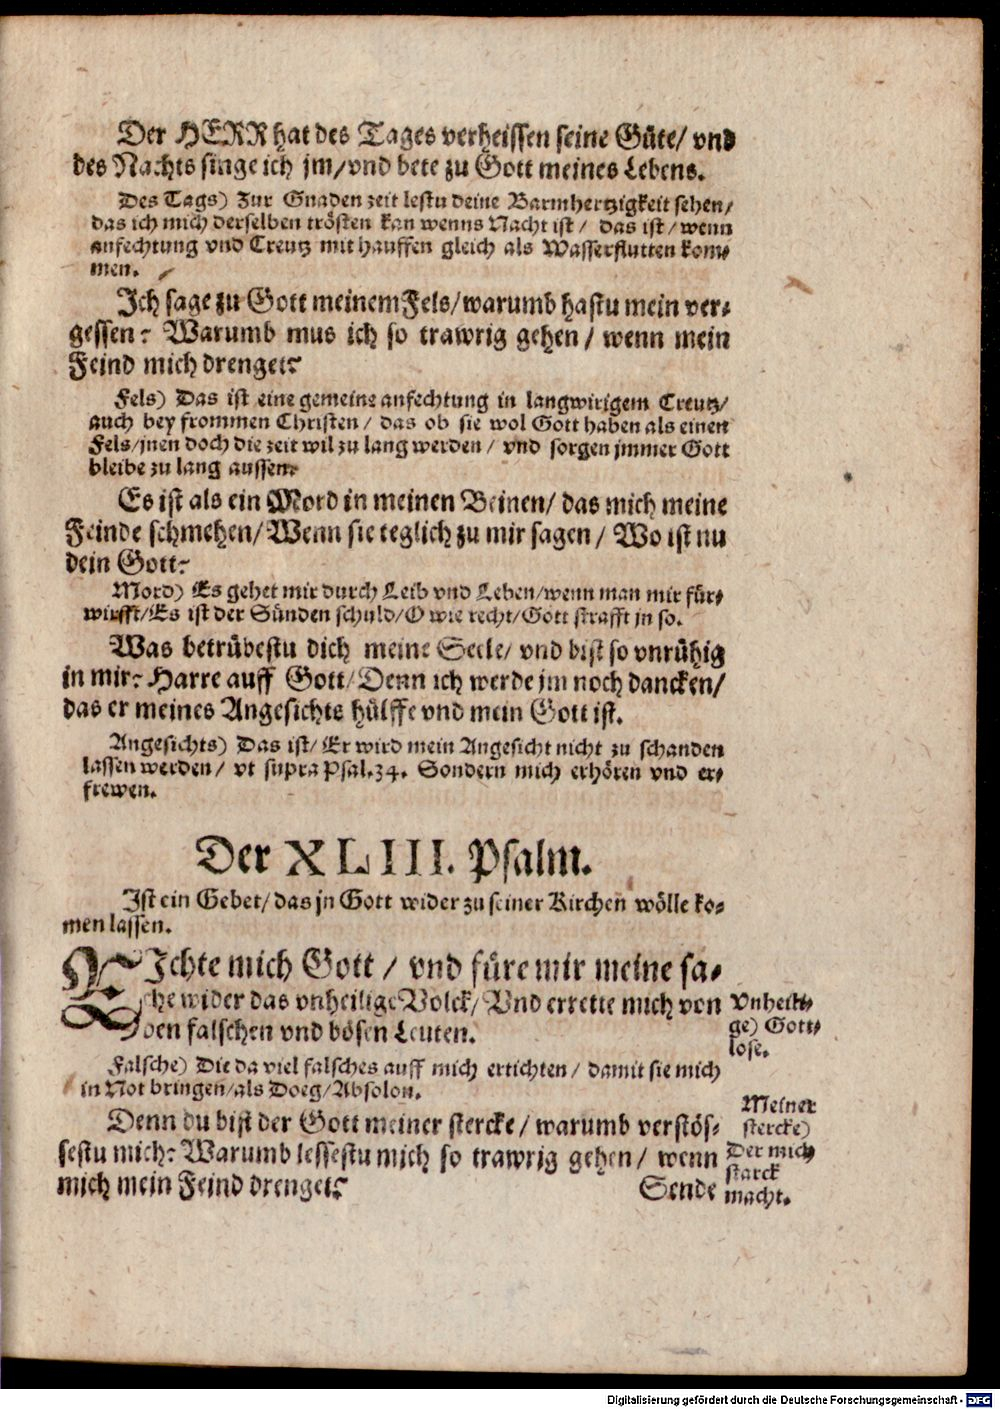 Der HERR hat des Tages verheissen seine Güte/ vnd
des Nachts singe ich jm/ vnd bete zu Gott meines Lebens.
Des Tags) Zur Gnaden zeit lestu deine Barmhertzigkeit sehen/
das ich mich derselben trösten kan wenns Nacht ist/ das ist/ wenn
anfechtung vnd Creutz mit hauffen gleich als Wasserflutten kom-
men.
Ich sage zu Gott meinem Fels/ warumb hastu mein ver-
gessen? Warumb mus ich so trawrig gehen/ wenn mein
Feind mich drenget?
Fels) Das ist eine gemeine anfechtung in langwirigem Creutz/
auch bey frommen Christen/ das ob sie wol Gott haben als einen
Fels/ jnen doch die zeit wil zu lang werden/ vnd sorgen jmmer Gott
bleibe zu lang aussen.
Es ist als ein Mord in meinen Beinen/ das mich meine
Feinde schmehen/ Wenn sie teglich zu mir sagen/ Wo ist nu
dein Gott?
Mord) Es gehet mir durch Leib vnd Leben/ wenn man mir für-
wirfft/ Es ist der Sünden schuld/ O wie recht/ Gott strafft jn so.
Was betrübestu dich meine Seele/ vnd bist so vnrühig
in mir? Harre auff Gott/ Denn ich werde jm noch dancken/
das er meines Angesichts hülffe vnd mein Gott ist.
Angesichts) Das ist/ Er wird mein Angesicht nicht zu schanden
lassen werden/ vt supra Psal. 34. Sondern mich erhören vnd er-
frewen.
Der XLIII. Psalm.
Ist ein Gebet/ das jn Gott wider zu seiner Kirchen wölle ko-
men lassen.
RIchte mich Gott/ vnd füre mir meine sa-
che wider das vnheilige Volck/ Vnd errette mich von
den falschen vnd bösen Leuten.
Vnheili-
ge) Gott-
lose.
Falsche) Die da viel falsches auff mich ertichten/ damit sie mich
in Not bringen/ als Doeg/ Absolon.
Denn du bist der Gott meiner stercke/ warumb verstös-
sestu mich? Warumb lessestu mich so trawrig gehen/ wenn
mich mein Feind drenget?
Meiner
stercke)
Der mich
starck
macht.
Sende
Digitalisierung gefördert durch die Deutsche Forschungsgemeinschaft - DFG